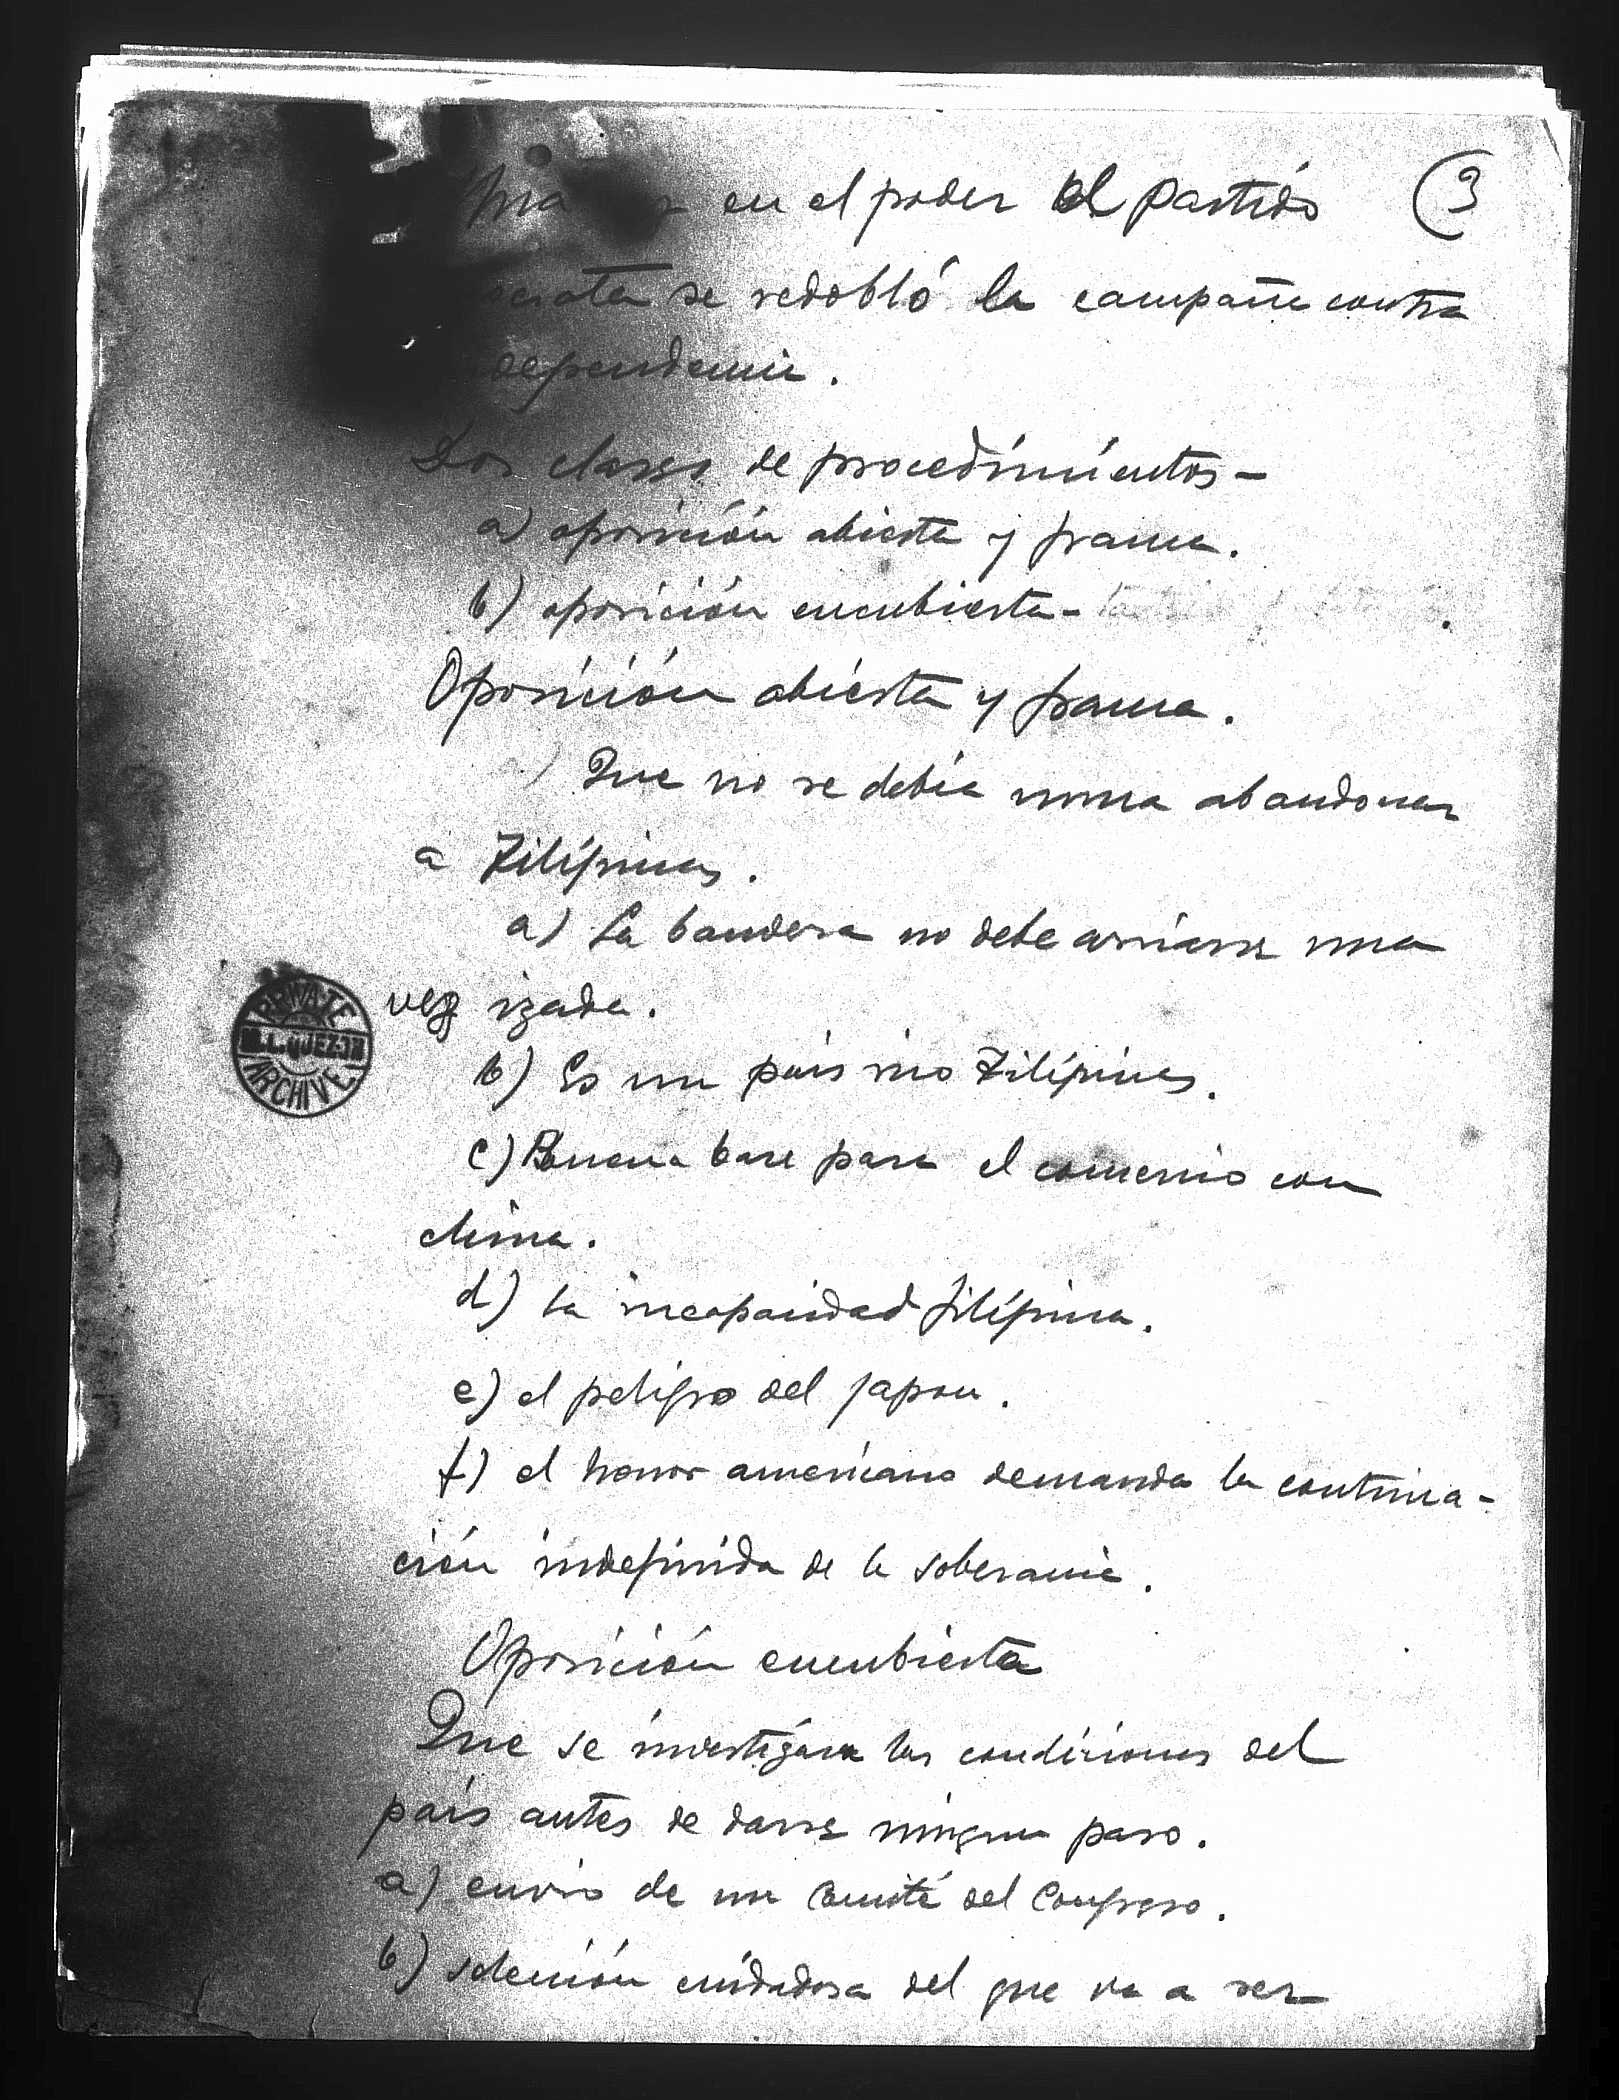 en el poder el partido (3
se redobló la campaña contra
dependencia.
Dos clases de procedimientos-
a) oposición abierta y franca.
b) oposición encubierta-
Oposición abierta y franca.
) Que no se debía nunca abandonar
a Filipinas.
a) La bandera no debe arriarse una
vez izada.
b) Es un país rico Filipinas.
c) Buena base para el comercio con
China.
d) La incapacidad filipina.
e) el peligro del Japon.
f) el honor americano demanda la continua-
ción indefinida de la soberania.
Oposición encubierta
Que se investigara las condiciones del
país antes de darse ningun paso.
a) envio de un Comité del Congreso.
b) selección cuidadosa del que va a ser
PRIVATE
M.L. QUEZON
ARCHIVE